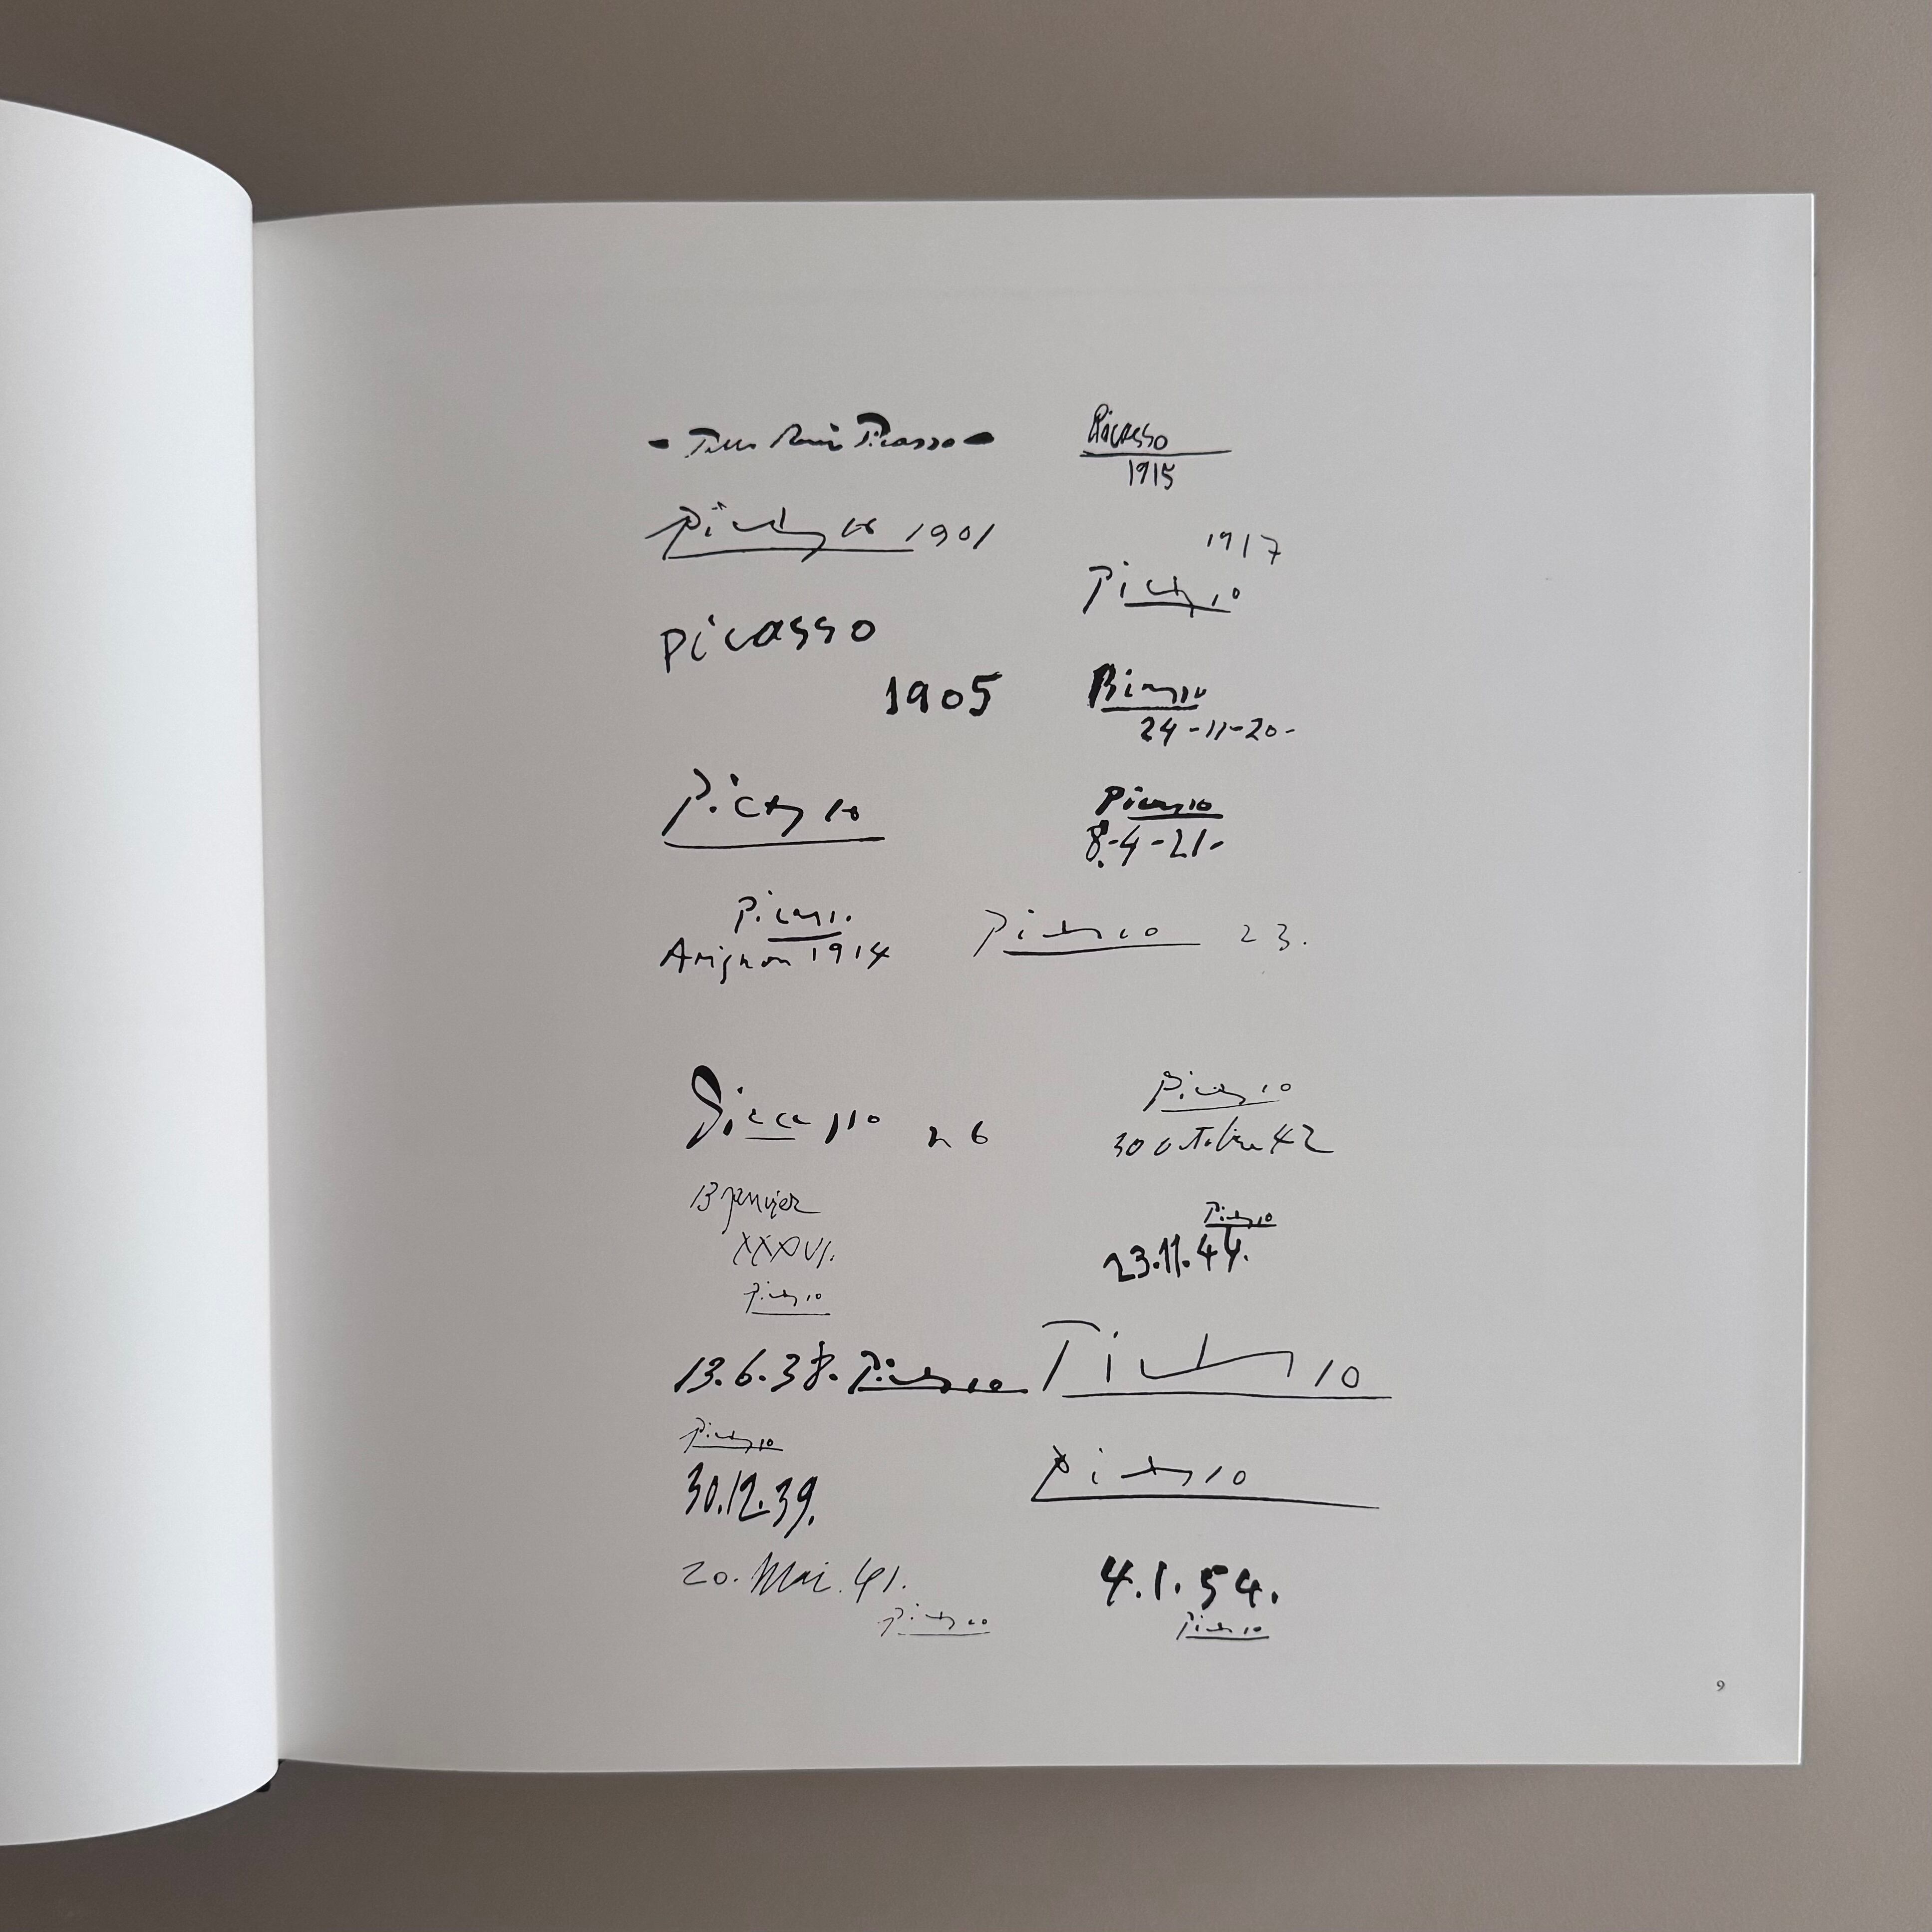 - Pablo Ruiz Picasso -
Picasso 1901
Picasso
1905
Picasso
Picasso
Avignon 1914
Picasso
1915
1917
Picasso
Picasso
24-11-20-
Picasso
8-4-21-
Picasso 23.
Picasso 26
13 janvier
XXXVI.
Picasso
13.6.38. Picasso
Picasso
30.12.39.
20. Mai. 41.
Picasso
Picasso
30 octobre 42
Picasso
23.11.44.
Picasso
Picasso
4.1.54.
Picasso
9